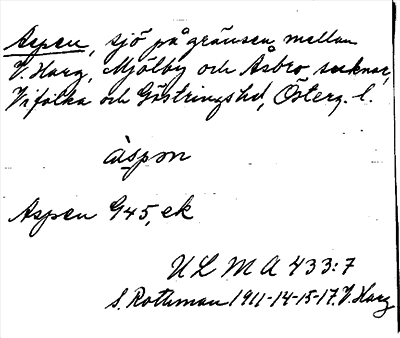 Aspen, sjö på gränsen mellan
V. Harg, Mjölby och Åsbro socknar,
Vifolka och Göstringshd, Österg. l.
àspm
Aspen G45, ek
U L M A 433:7
S. Rothman 1911-14-15-17. V. Harg